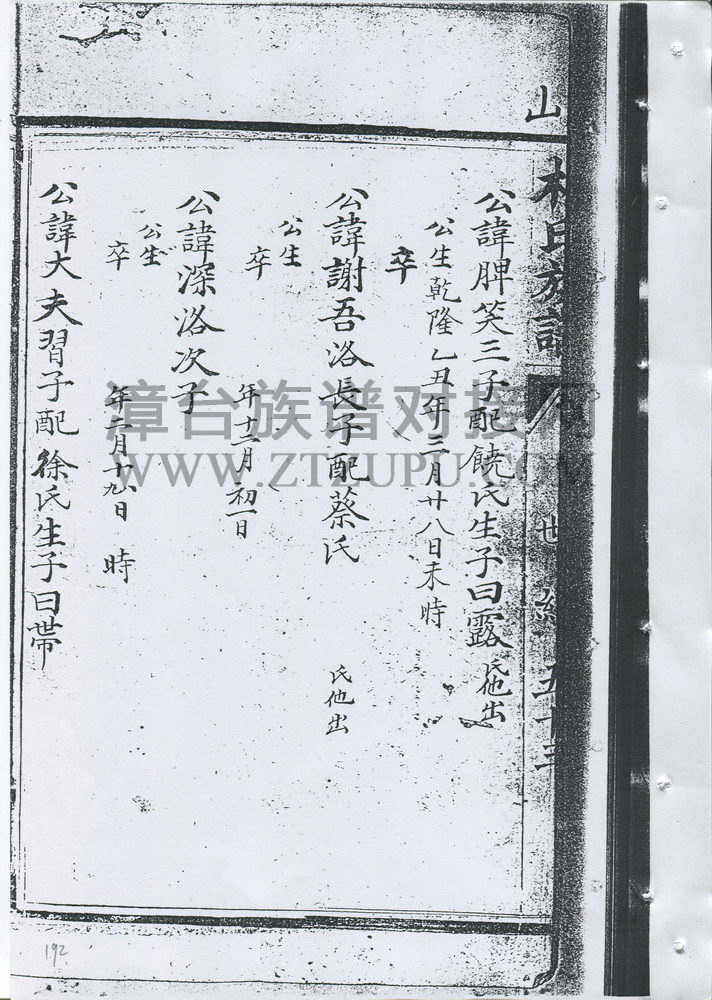 山
林氏族譜
世紀 五十三
公諱脾笑三子配饒氏生子曰露 氏他出
公生乾隆乙丑年三月廿八日未時
卒
公諱謝吾洛長子配蔡氏 氏他出
公生
卒 年十二月初一日
公諱深洛次子
公生
卒 年二月十九日 時
公諱大夫習子配徐氏生子曰帶
漳台族谱对接网
WWW.ZTZUPU.COM
192